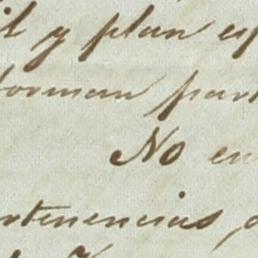 il y plan es
forman par
No en
rtenencias,